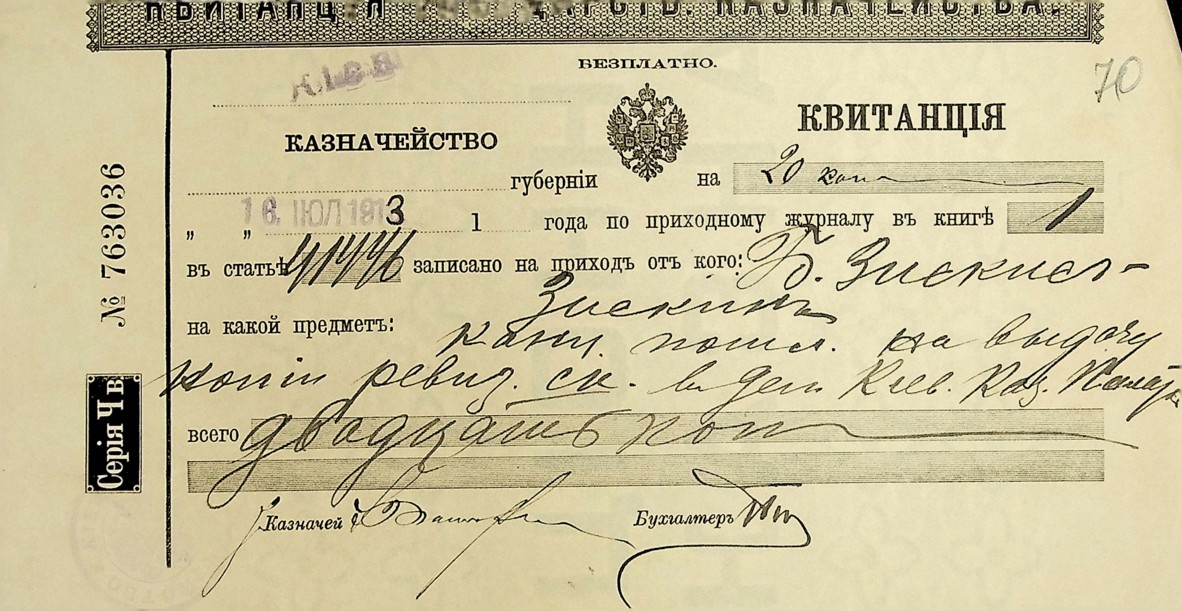 КВИТАНЦІЯ ЦАРСТВ. КАЗНАЧЕЙСТВА.
БЕЗПЛАТНО.
70
КІЕВ
КАЗНАЧЕЙСТВО
КВИТАНЦІЯ
губерніи на 20 коп
„ „ 16. ІЮЛ 1913 1 года по приходному журналу въ книгѣ 1
въ статьѣ записано на приходъ отъ кого: Б. Зискисъ-
Зискинъ
на какой предметъ: канц. пошл. на выдачу
копіи ревиз. ск. в дел. Кіев. Каз. Палаты
всего двадцать коп
Казначей Бухгалтеръ
№ 763036
Серія Ч в